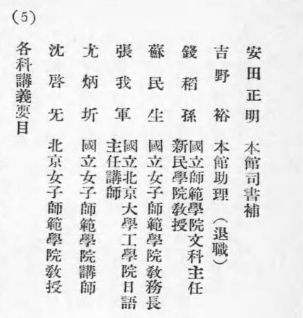 安田正明 本館司書補
吉野裕 本館助理（退職）
錢稻孫 國立師範學院文科主任
新民學院教授
蘇民生 國立女子師範學院教務長
張我軍 國立北京大學工學院日語
主任講師
尤炳圻 國立女子師範學院講師
沈啓旡 北京女子師範學院教授
各科講義要目
(5)